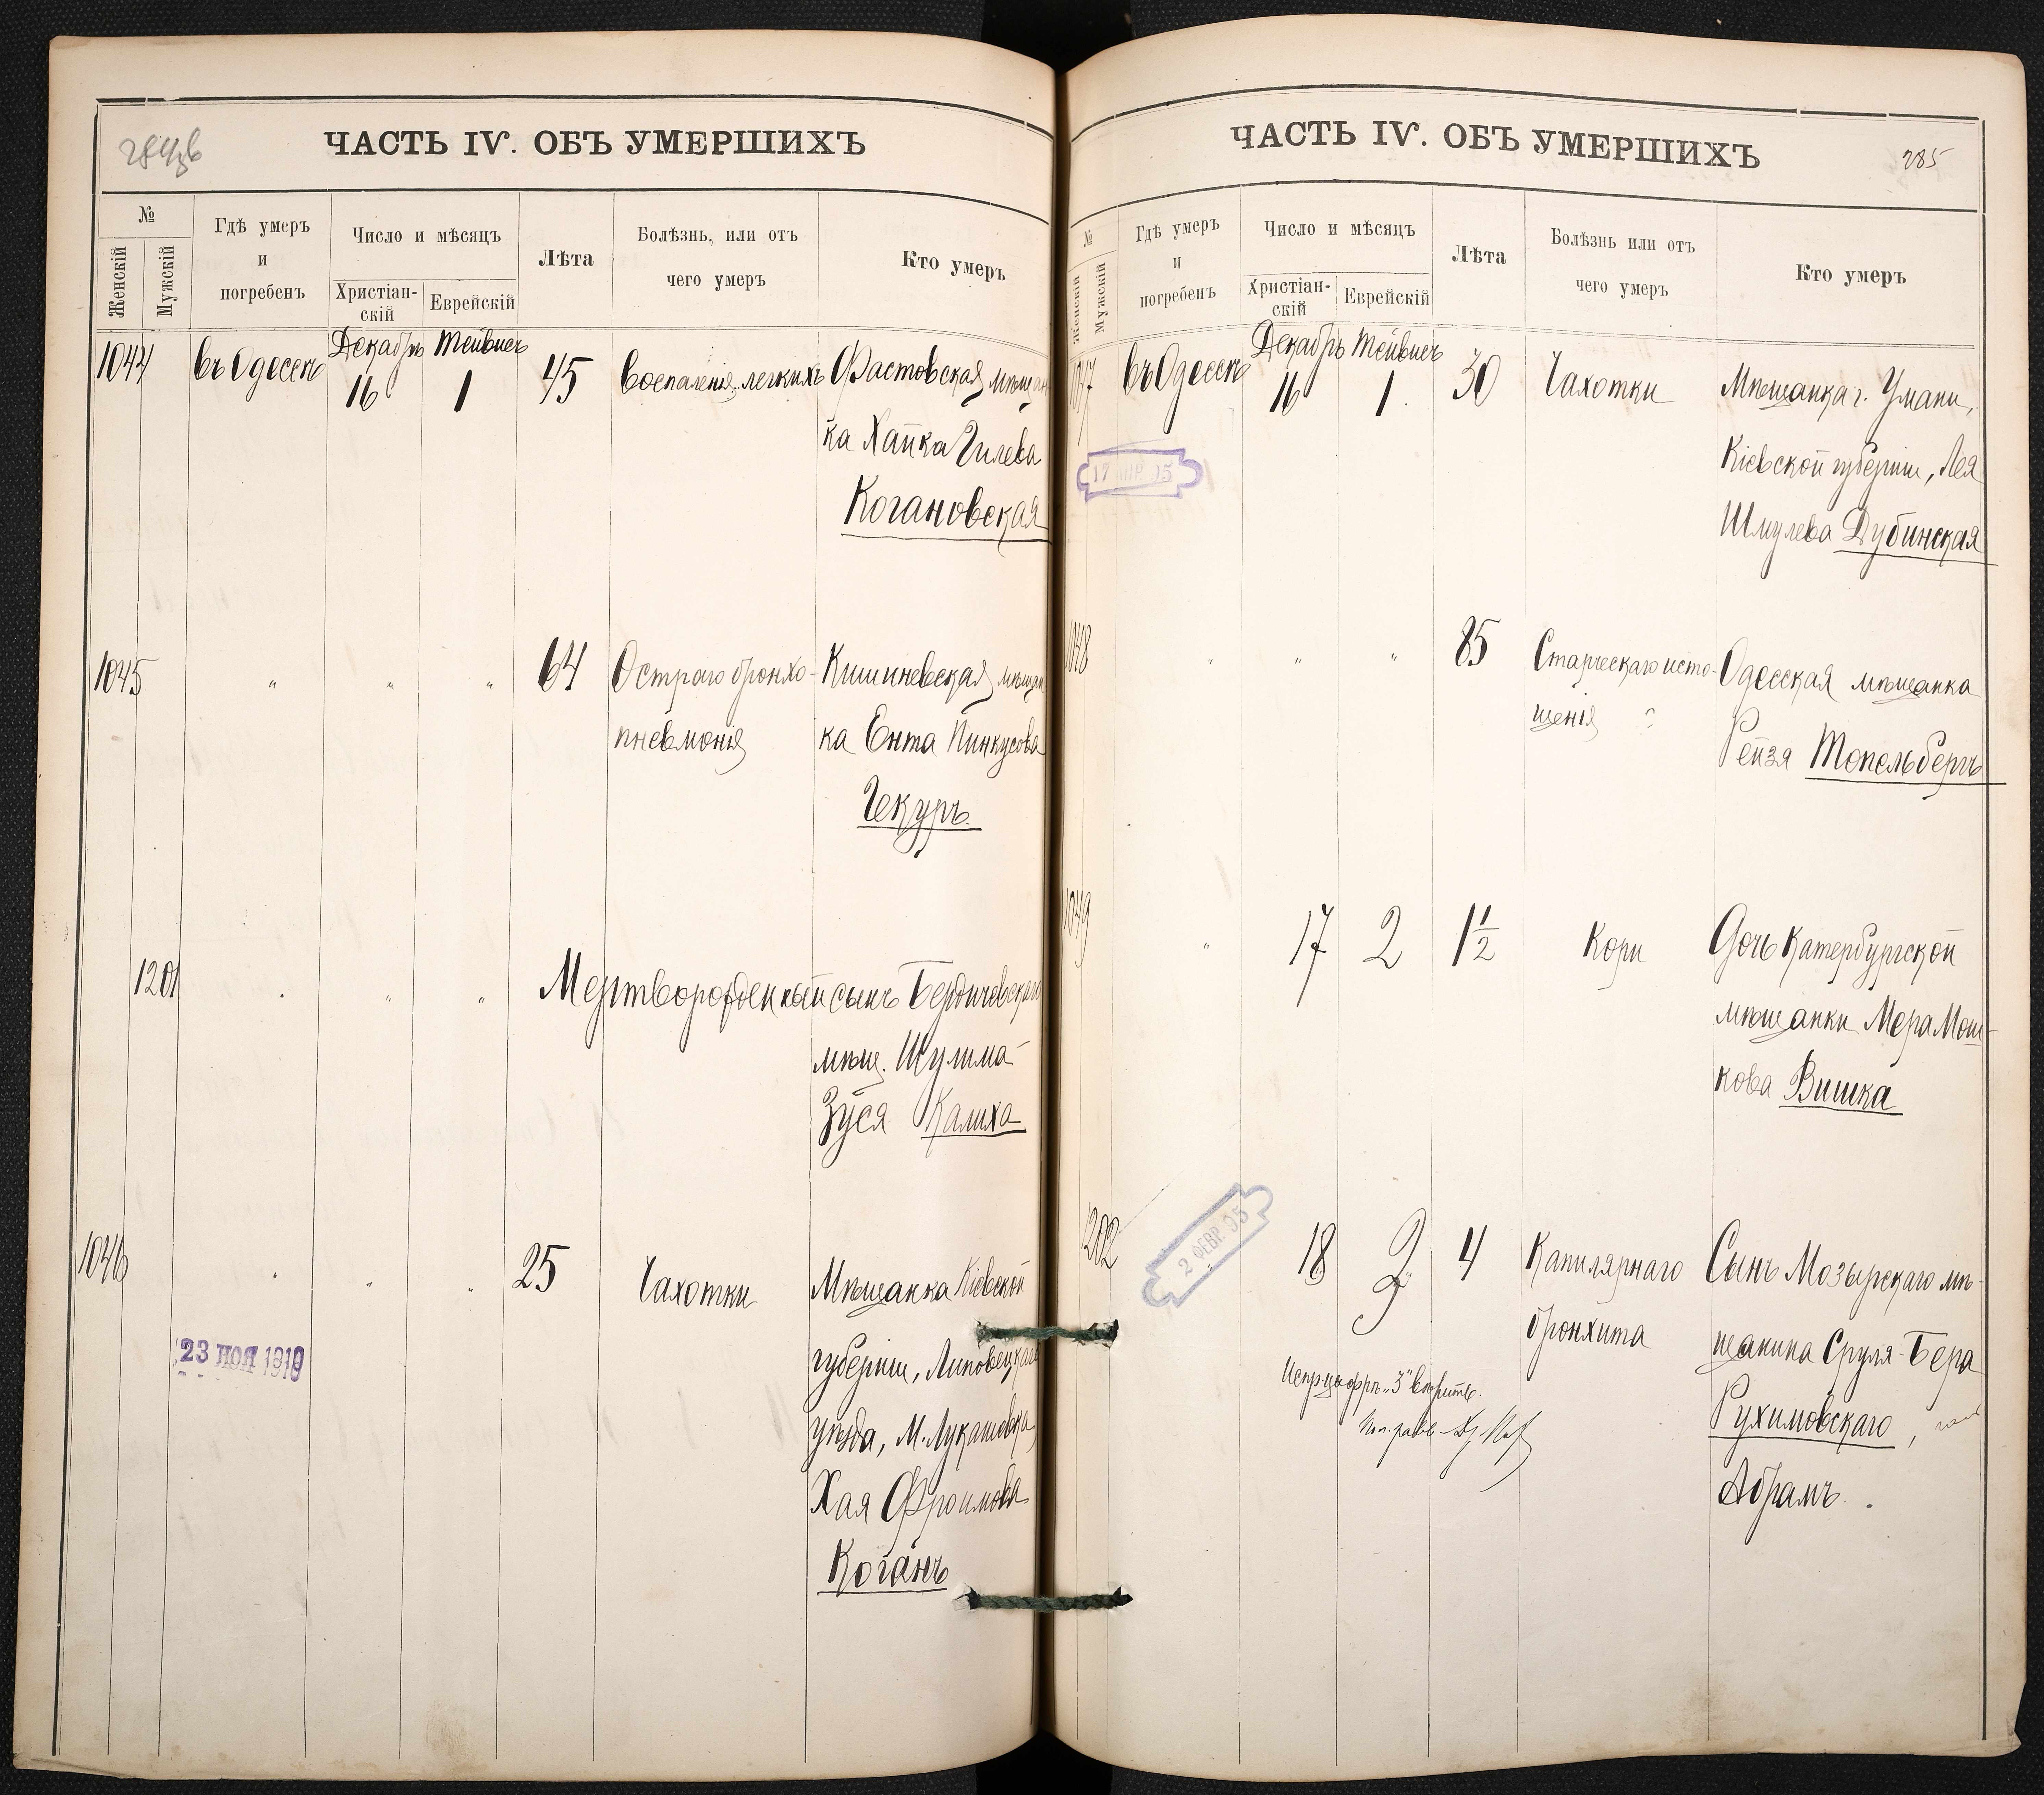 ЧАСТЬ IV. ОБЪ УМЕРШИХЪ
№
Женскій
Мужскій
Гдѣ умеръ
и
погребенъ
Число и мѣсяцъ
Христіан-
скій
Еврейскій
Лѣта
Болѣзнь, или отъ
чего умеръ
Кто умеръ
1044
въ Одессѣ
Декабрь
16
Тейвисъ
1
45
Воспаленія легкихъ
Фастовская мѣщан
ка Хайка Гилева
Когановская
1045
" " "
64
Остраго бронхо-
пневмонія
Кишиневская мѣщан
ка Ента Пинкусова
Чекуръ.
1201
" " "
Мертворожденный сынъ Бердичевскаго
мѣщ. Шулима-
Зуся Калиха
1046
" " "
25
Чахотки
Мѣщанка Кіевской
губерніи, Липовецкаго
уѣзда, М. Лукашовка
Хая Фроимова
Коганъ
23 НОЯ 1910
ЧАСТЬ IV. ОБЪ УМЕРШИХЪ
285
№
Женскій
Мужскій
Гдѣ умеръ
и
погребенъ
Число и мѣсяцъ
Христіан-
скій
Еврейскій
Лѣта
Болѣзнь или отъ
чего умеръ
Кто умеръ
1047
въ Одессѣ
Декабрь
16
Тейвисъ
1.
30
Чахотки
Мѣщанка г. Умани,
Кіевской губерніи, Лея
Шмулева Дубинская
17 95
1048
" " "
85
Старческаго исто-
щенія
Одесская мѣщанка
Рейзя Топельбергъ
1049
"
17
2
1½
Кори
Дочь Катербургской
мѣщанки Мера Мош-
кова Вишка
1202
2 ФЕВР. 95
18
3
4
Капилярнаго
бронхита
Сынъ Мозырскаго мѣ-
щанина Сруля-Бера
Рухимовскаго,
Абрамъ.